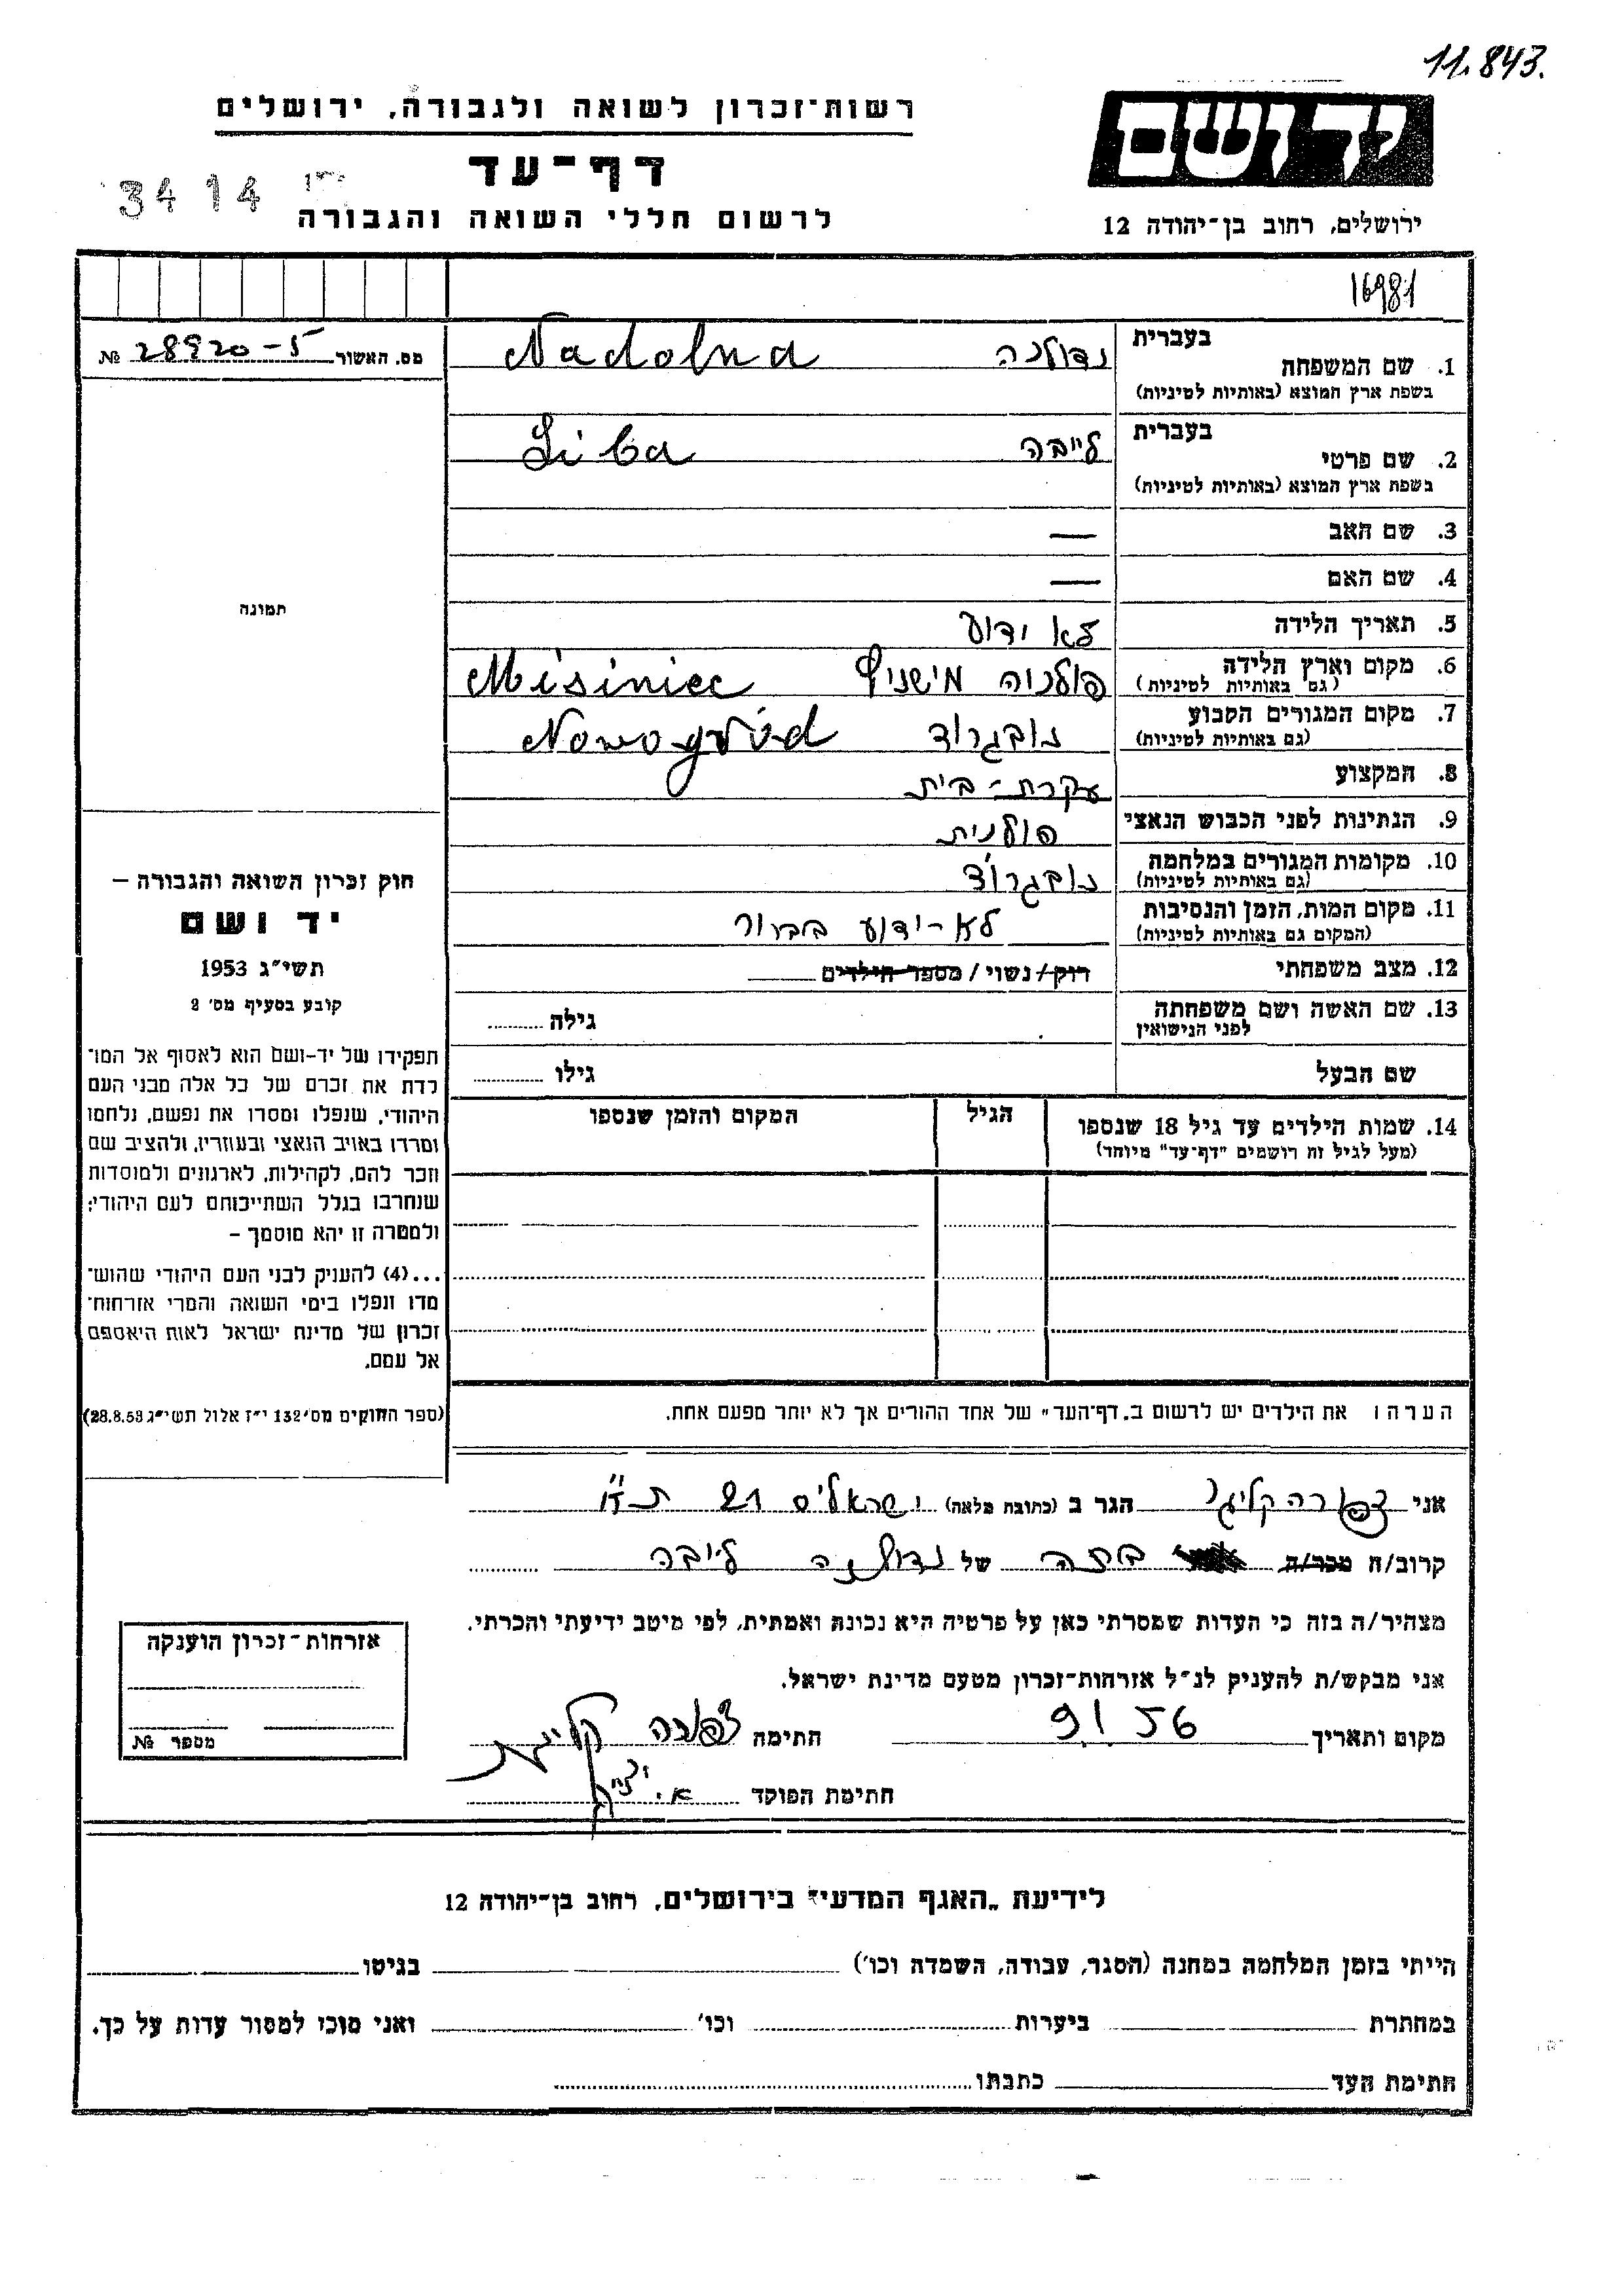 11.843.
רשות-זכרון לשואה ולגבורה, ירושלים
יד ושם
דף-עד
3414
לרשום חללי השואה והגבורה
ירושלים, רחוב בן-יהודה 12
16981
מס. האשור 28920-5 №
בעברית
1. שם המשפחה נדולנה Nadolna
בשפת ארץ המוצא (באותיות לטיניות)
בעברית
2. שם פרטי לייבה Liba
בשפת ארץ המוצא (באותיות לטיניות)
3. שם האב —
4. שם האם —
תמונה
5. תאריך הלידה לא ידוע
6. מקום וארץ הלידה פולניה מישניץ Misiniec
(גם באותיות לטיניות)
7. מקום המגורים הקבוע נובגרוד Nowogród
(גם באותיות לטיניות)
8. המקצוע עקרת-בית
9. הנתינות לפני הכבוש הנאצי פולנית
10. מקומות המגורים במלחמה נובגרוד
(גם באותיות לטיניות)
11. מקום המות, הזמן והנסיבות לא-ידוע ברור
(המקום גם באותיות לטיניות)
12. מצב משפחתי רוק/נשוי/מספר הילדים
13. שם האשה ושם משפחתה גילה
לפני הנישואין
שם הבעל גילו
14. שמות הילדים עד גיל 18 שנספו הגיל המקום והזמן שנספו
(מעל לגיל זה רושמים "דף-עד" מיוחד)
חוק זכרון השואה והגבורה –
יד ושם
תשי"ג 1953
קובע בסעיף מס' 2
תפקידו של יד-ושם הוא לאסוף אל המו-
לדת את זכרם של כל אלה מבני העם
היהודי, שנפלו ומסרו את נפשם, נלחמו
ומרדו באויב הנאצי ובעוזריו, ולהציב שם
וזכר להם, לקהילות, לארגונים ולמוסדות
שנחרבו בגלל השתייכותם לעם היהודי;
ולמטרה זו יהא מוסמך –
...(4) להעניק לבני העם היהודי שהוש-
מדו ונפלו בימי השואה והמרי אזרחות-
זכרון של מדינת ישראל לאות היאספם
אל עמם.
(ספר החוקים מס' 132 י"ז אלול תשי"ג 28.8.53)
הערה: את הילדים יש לרשום ב„דף-העד" של אחד ההורים אך לא יותר מפעם אחת.
אני צפורה הגר ב (כתובת מלאה) ישראליס 21 ת"א
קרוב/ה מכר/ה בתה של נדולנה ליבה
מצהיר/ה בזה כי העדות שמסרתי כאן על פרטיה היא נכונה ואמתית, לפי מיטב ידיעתי והכרתי.
אני מבקש/ת להעניק לנ"ל אזרחות-זכרון מטעם מדינת ישראל.
מקום ותאריך 9/ 56 חתימה צפורה
חתימת הפוקד
אזרחות-זכרון הוענקה
מספר №
לידיעת „האגף המדעי" בירושלים, רחוב בן-יהודה 12
הייתי בזמן המלחמה במחנה (הסגר, עבודה, השמדה וכו') בגיטו
במחתרת ביערות וכו' ואני מוכן למסור עדות על כך.
חתימת העד כתבתו